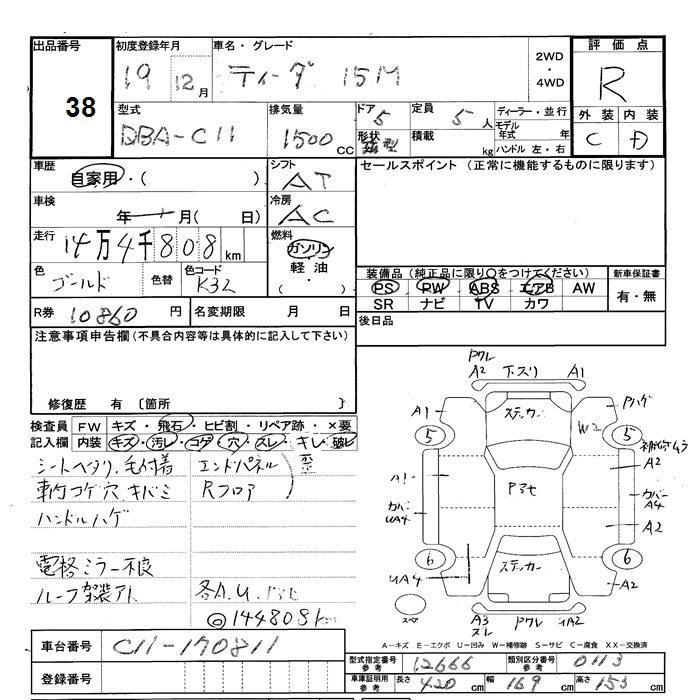 出品番号 38
初度登録年月 19 12月
車名・グレード ティーダ 15M
2WD・4WD
評価点 R
外装 C 内装 D
型式 DBA-C11
排気量 1500 CC
ドア 5
形状 箱型
定員 5人
積載 kg
ディーラー・並行
モデル年式 年
ハンドル 左・右
車歴 自家用・( )
シフト AT
セールスポイント (正常に機能するものに限ります)
車検 年 月( 日)
冷房 AC
走行 14万4千808km
燃料 ガソリン 軽油
色 ゴールド 色替 色コード K32
装備品 (純正品に限り○をつけてください)
PS PW ABS エアB AW
SR ナビ TV カワ
新車保証書 有・無
R券 10860円 名変期限 月 日
後日品
注意事項申告欄(不具合内容等は具体的に記入して下さい)
修復歴 有 〔箇所 〕
検査員記入欄
FW キズ・飛石・ヒビ割・リペア跡・×要
内装 キズ・汚レ・コゲ・穴・スレ・キレ・破レ
シートヘタリ、毛付着 エンドパネル 歪
車内コゲ穴、キバミ Rフロア
ハンドルハゲ
電格ミラー不良
ルーフ架装アト 各A.U.
◎144808km
Pワレ
A2 下ズリ A1
A1 ステッカー W2 Pハゲ
5 5 補修ムラ
A2
A1 カバー A4
カバー UA4 A2
6 6
UA4 ステッカー A2
スペア
A3 スレ Pワレ UA2
A-キズ E-エクボ U-凹み W-補修跡 S-サビ C-腐食 XX-交換済
車台番号 C11-170811
登録番号
型式指定番号 参考 12666 類別区分番号 参考 0113
車庫証明用 参考 長さ 420cm 幅 169cm 高さ 153cm